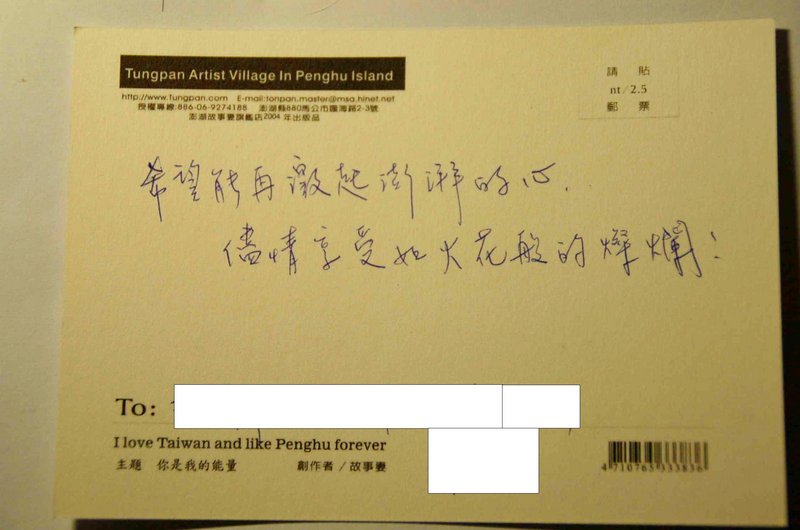 Tungpan Artist Village In Penghu Island
http://www.tungpan.com E-mail:tonpan.master@msa.hinet.net
授權專線:886-06-9274188 澎湖縣880馬公市臨海路2-3號
澎湖故事妻旗艦店2004年出版品
請 貼
nt/2.5
郵 票
希望能再激起澎湃的心.
儘情享受如火花般的燦爛!
To:
I love Taiwan and like Penghu forever
主題 你是我的能量 創作者/故事妻
4710765333836